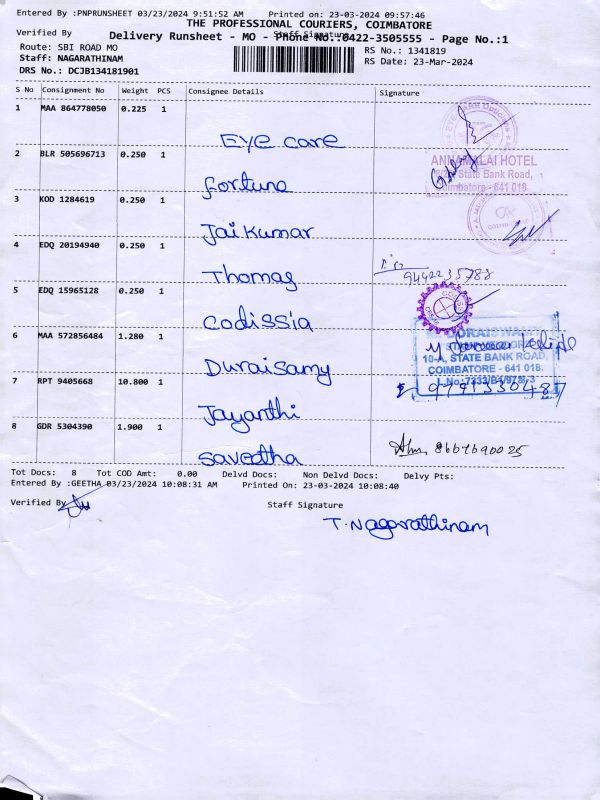 Entered By :PNPRUNSHEET 03/23/2024 9:51:52 AM Printed on: 23-03-2024 09:57:46
THE PROFESSIONAL COURIERS, COIMBATORE
Verified By Staff Signature
Delivery Runsheet - MO - Phone No.:0422-3505555 - Page No.:1
Route: SBI ROAD MO RS No.: 1341819
Staff: NAGARATHINAM RS Date: 23-Mar-2024
DRS No.: DCJB134181901
S No Consignment No Weight PCS Consignee Details Signature
1 MAA 864778050 0.225 1
Eye care
2 BLR 505696713 0.250 1
ANNAMALAI HOTEL
State Bank Road,
Coimbatore - 641 018.
fortuna
3 KOD 1284619 0.250 1
Jai Kumar
4 EDQ 20194940 0.250 1
Thomas
9442235788
5 EDQ 15965128 0.250 1
Codissia
6 MAA 572856484 1.280 1
10-A, STATE BANK ROAD,
COIMBATORE - 641 018.
Duraisamy
7 RPT 9405668 10.800 1
9791330487
Jayanthi
8 GDR 5304390 1.900 1
8667690025
Savedha
Tot Docs: 8 Tot COD Amt: 0.00 Delvd Docs: Non Delvd Docs: Delvy Pts:
Entered By :GEETHA 03/23/2024 10:08:31 AM Printed On: 23-03-2024 10:08:40
Verified By Staff Signature
T. Nagarathinam